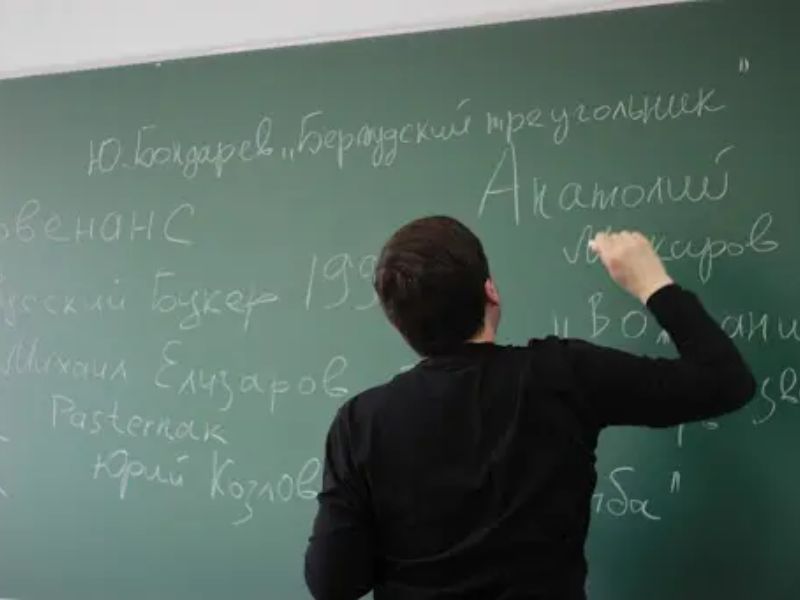 Ю. Бондарев „Бермудский треугольник"
Анатолий
Макаров
овенанс
усский Букер 199
Михаил Елизаров
Pasternak
Юрий Козлов
ба"